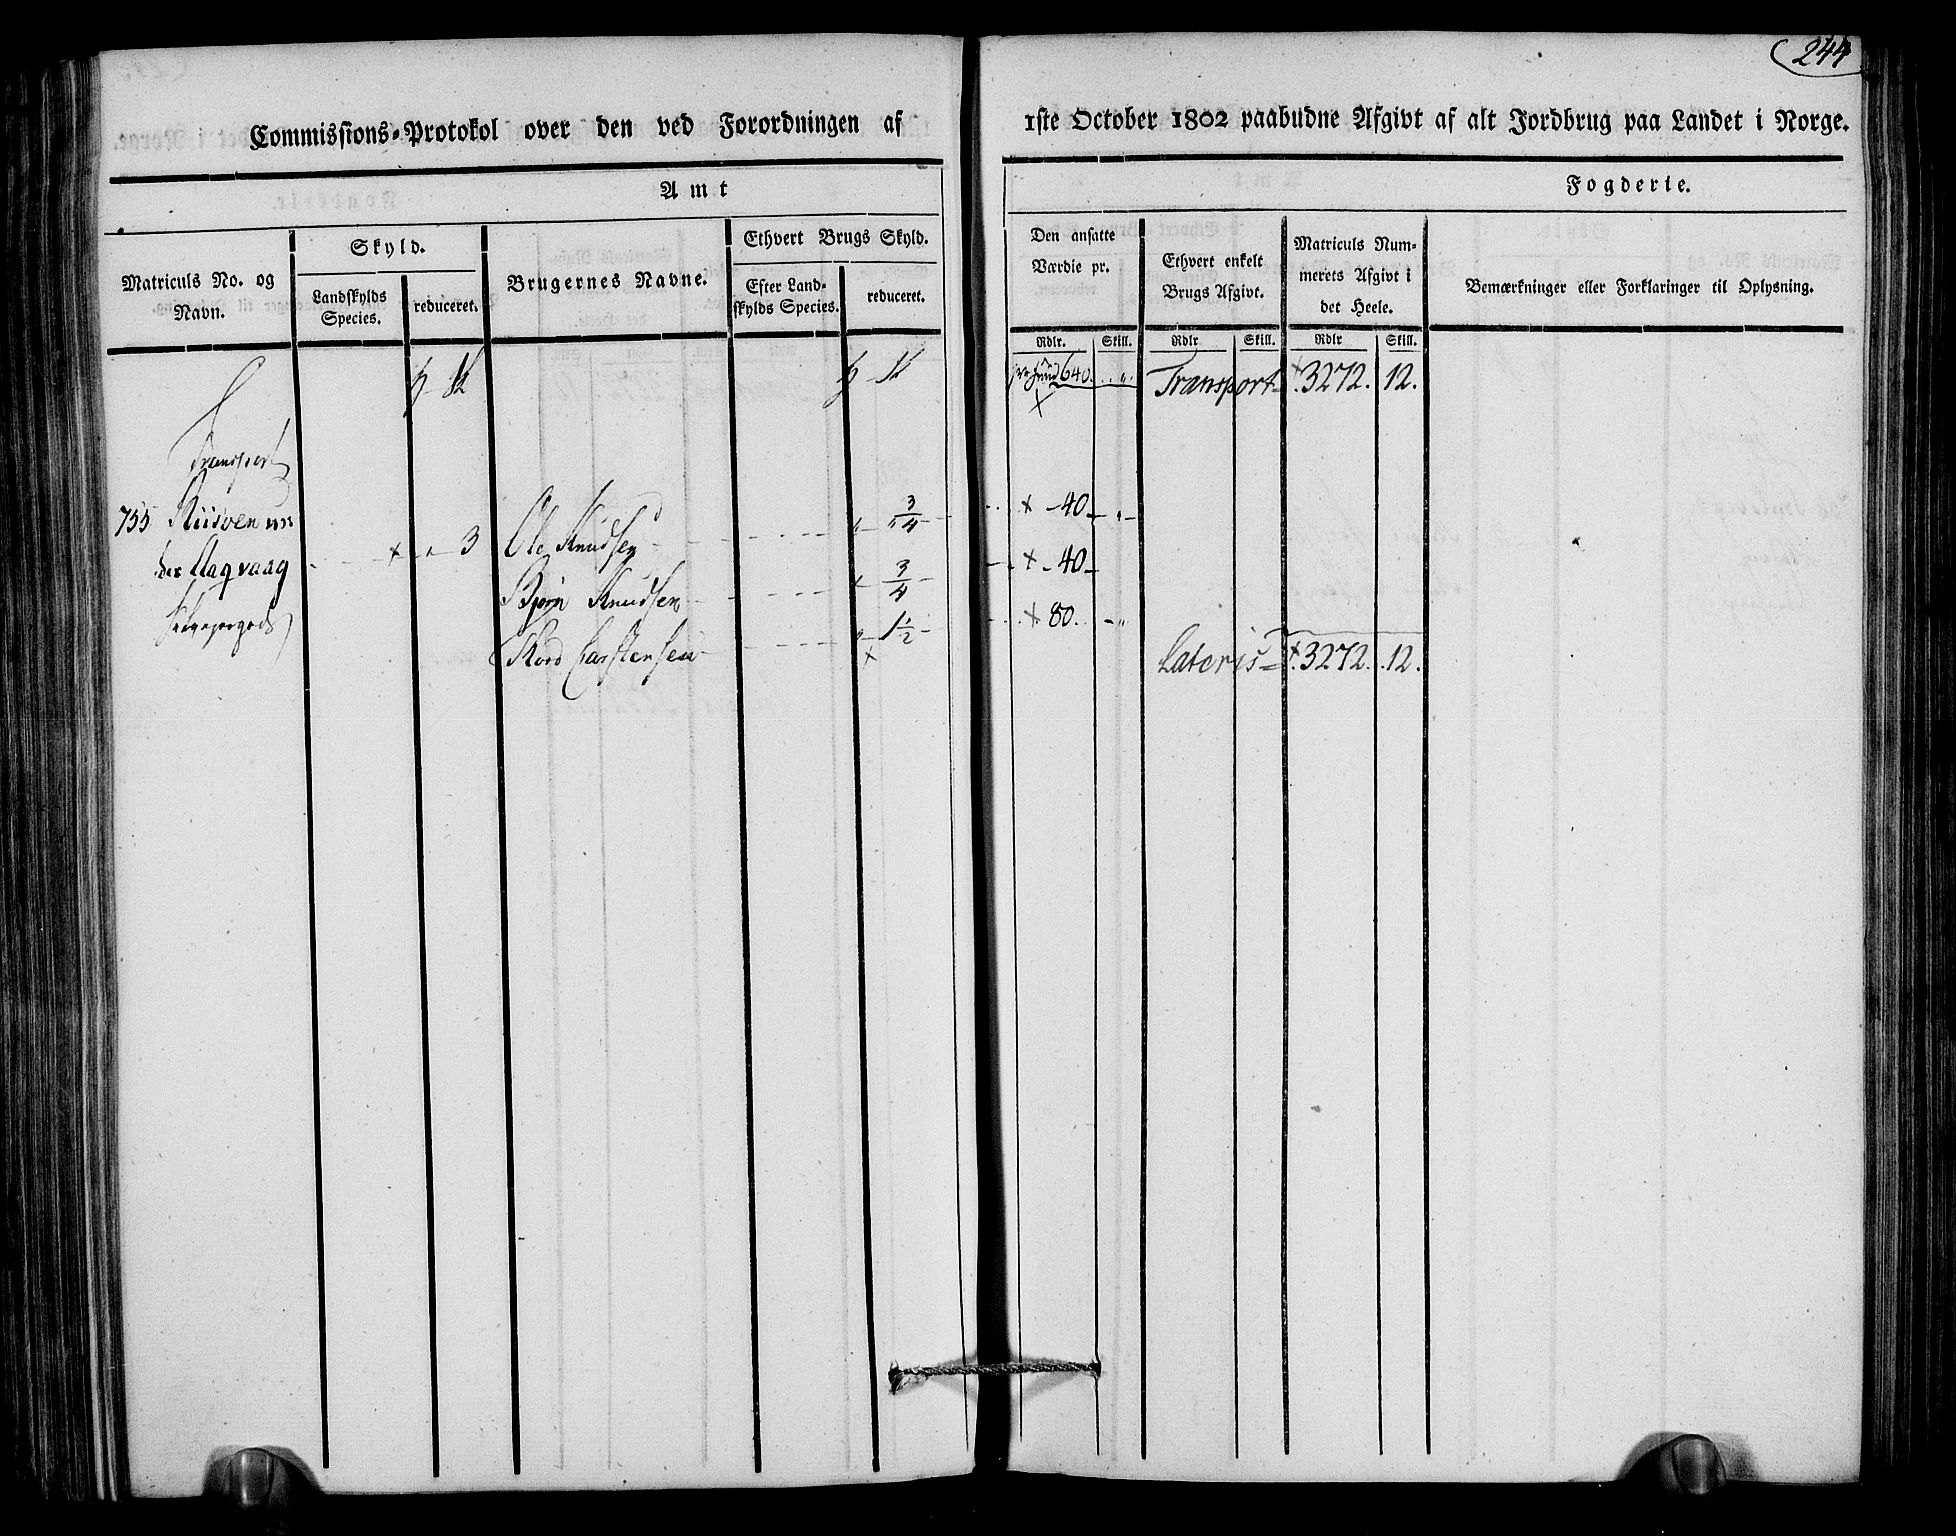 244
Commissions-Protokol over den ved Forordningen af 1ste October 1802 paabudne Afgivt af alt Jordbrug paa Landet i Norge.
Amt
Fogderie.
Matriculs No. og Navn.
Skyld.
Landskylds Species.
reduceret.
Brugernes Navne.
Ethvert Brugs Skyld.
Efter Land-
skylds Species.
reduceret.
Den ansatte
Værdie pr.
Rdlr. Skill.
Ethvert enkelt
Brugs Afgivt.
Rdlr Skill.
Matriculs Num-
merets Afgivt i
det Heele.
Rdlr Skill.
Bemærkninger eller Forklaringer til Oplysning.
640.
Transport 3272. 12.
Transport
755 Riisven un
der Aaqvaag
3
Ole Knudsen 3/4 40
Bjørn Knudsen 3/4 40
Carstensen 1 1/2 80.
Lateris 3272. 12.